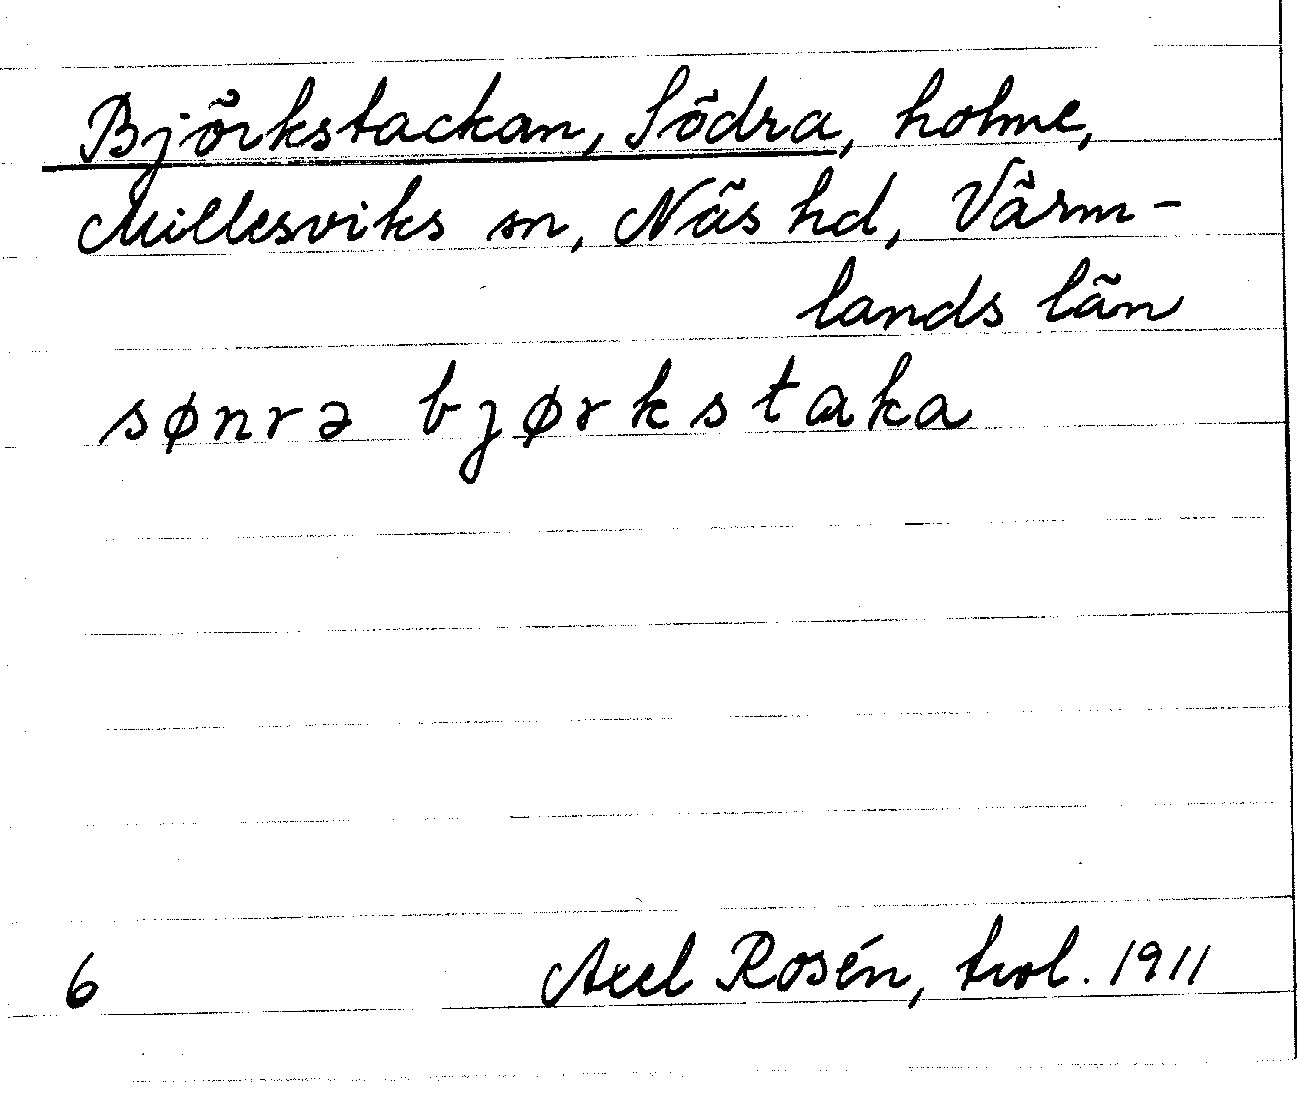 Björkstackan, Södra, holme,
Millesviks sn, Näs hd, Värm-
lands län
sønrə bjørkstaka
6 Axel Rosén, trol. 1911